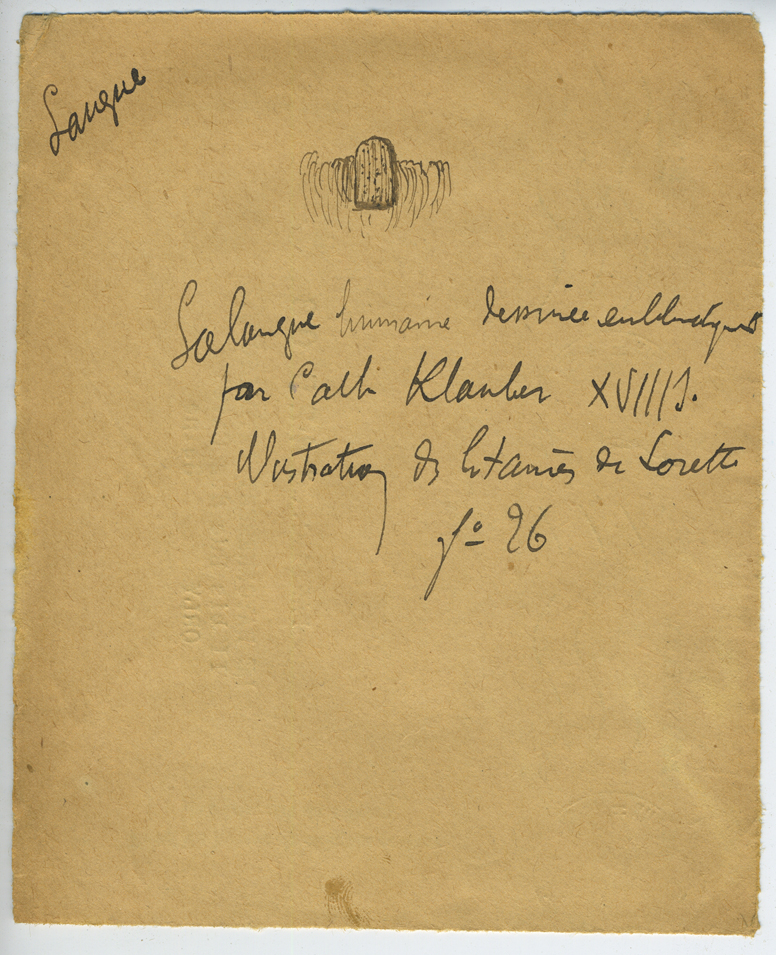 Langue
La langue humaine dessinée
par Cath Klauber XVIII s.
Illustration des Litanies de Lorette
fº 26